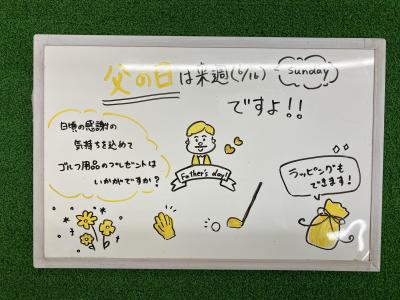 父の日は来週(6/16) sunday
ですよ!!
日頃の感謝の
気持ちを込めて
ゴルフ用品のプレゼントは
いかがですか?
Father's day!
ラッピングも
できます!